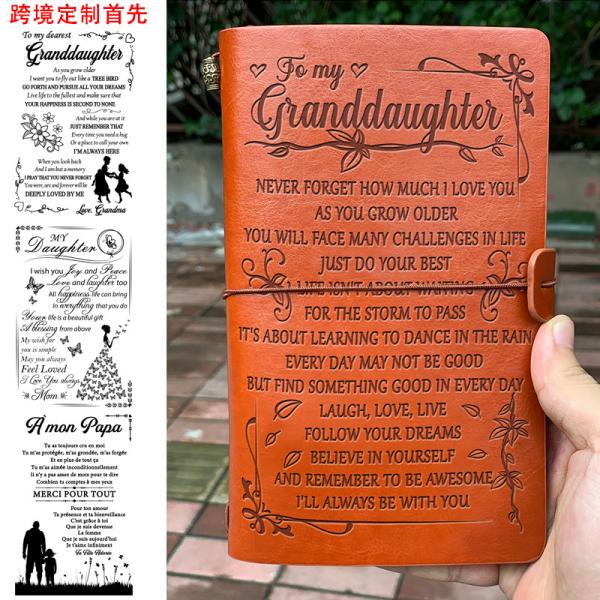 跨境定制首先
To my dearest
Granddaughter
As you grow older
I want you to fly out like a TREE BIRD
GO FORTH AND PURSUE ALL YOUR DREAMS
Live life to the fullest and make sure that
YOUR HAPPINESS IS SECOND TO NONE
And while you are at it
JUST REMEMBER THAT
Every time you need a hug
Or a place to call your own
I'M ALWAYS HERE
When you look back
And I am but a memory
I PRAY THAT YOU NEVER FORGET
You were, are and forever will be
DEEPLY LOVED BY ME
Love, Grandma
MY
Daughter
I wish you Joy and Peace
Love and laughter too
All happiness life can bring
In everything that you do
Your life is a beautiful gift
A blessing from above
My wish for
you is simple
May you always
Feel Loved
I Love You always
Mom
À mon Papa
Tu as toujours cru en moi
Tu m'as protégée, m'as grondée, m'as forgée
Et en plus de tout ça
Tu m'as aimée inconditionnellement
Il n'y a pas assez de mots pour te dire
Combien tu comptes à mes yeux
MERCI POUR TOUT
Pour ton amour
Ta présence et ta bienveillance
C'est grâce à toi
Que je suis devenue
La femme
Que je suis aujourd'hui
Je t'aime infiniment
Ta Fille Adorée
To my
Granddaughter
NEVER FORGET HOW MUCH I LOVE YOU
AS YOU GROW OLDER
YOU WILL FACE MANY CHALLENGES IN LIFE
JUST DO YOUR BEST
LIFE ISN'T ABOUT WAITING
FOR THE STORM TO PASS
IT'S ABOUT LEARNING TO DANCE IN THE RAIN
EVERY DAY MAY NOT BE GOOD
BUT FIND SOMETHING GOOD IN EVERY DAY
LAUGH, LOVE, LIVE
FOLLOW YOUR DREAMS
BELIEVE IN YOURSELF
AND REMEMBER TO BE AWESOME
I'LL ALWAYS BE WITH YOU